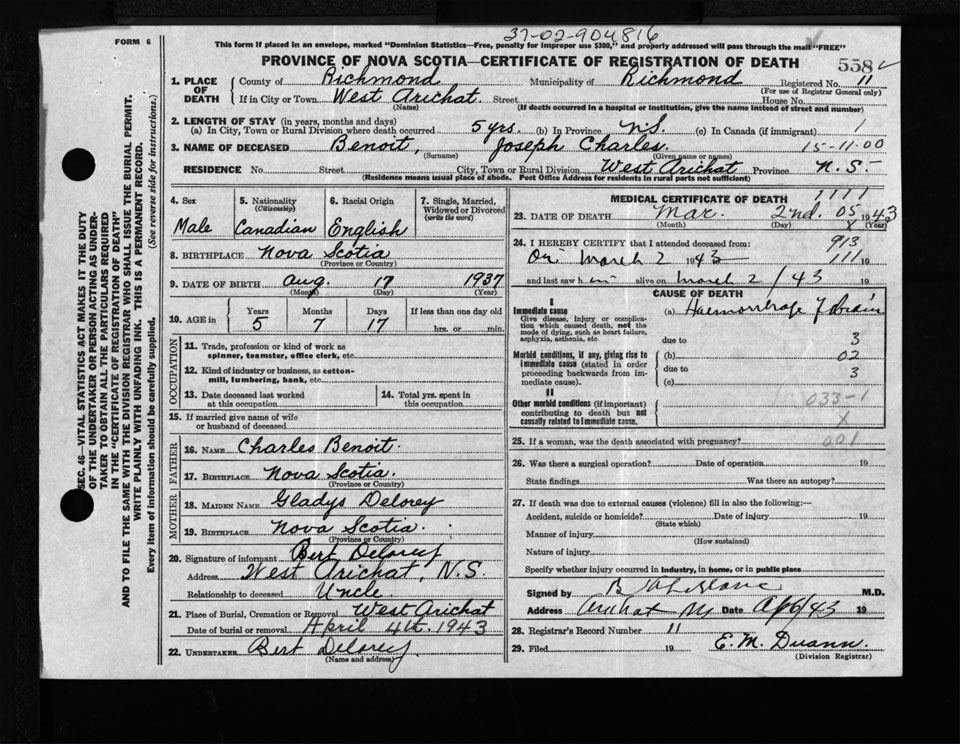 37-02-904816
FORM 6
This form if placed in an envelope, marked "Dominion Statistics—Free, penalty for improper use $300," and properly addressed will pass through the mail "FREE"
PROVINCE OF NOVA SCOTIA—CERTIFICATE OF REGISTRATION OF DEATH
558
1. PLACE OF DEATH County of Richmond Municipality of Richmond Registered No. 11
(For use of Registrar General only)
If in City or Town West Arichat. Street House No.
(Name) (If death occurred in a hospital or institution, give the name instead of street and number)
2. LENGTH OF STAY (in years, months and days)
(a) In City, Town or Rural Division where death occurred 5 yrs. (b) In Province N.S. (c) In Canada (if immigrant) 1
3. NAME OF DECEASED Benoit, Joseph Charles. 15-11-00
(Surname) (Given name or names)
RESIDENCE No. Street City, Town or Rural Division West Arichat Province N.S.
(Residence means usual place of abode. Post Office Address for residents in rural parts not sufficient)
4. Sex
Male
5. Nationality
(Citizenship)
Canadian
6. Racial Origin
English
7. Single, Married, Widowed or Divorced
(write the word)
8. BIRTHPLACE Nova Scotia
(Province or Country)
9. DATE OF BIRTH Aug. 17 1937
(Month) (Day) (Year)
10. AGE in
Years Months Days If less than one day old
5 7 17 hrs. or min.
OCCUPATION
11. Trade, profession or kind of work as
spinner, teamster, office clerk, etc.
12. Kind of industry or business, as cotton-
mill, lumbering, bank, etc.
13. Date deceased last worked
at this occupation
14. Total yrs. spent in
this occupation
15. If married give name of wife
or husband of deceased
FATHER
16. NAME Charles Benoit.
17. BIRTHPLACE Nova Scotia.
(Province or Country)
MOTHER
18. MAIDEN NAME Gladys Delorey
19. BIRTHPLACE Nova Scotia.
(Province or Country)
20. Signature of informant Bert Delorey
Address West Arichat, N.S.
Relationship to deceased Uncle.
21. Place of Burial, Cremation or Removal West Arichat
Date of burial or removal April 4th. 1943
22. UNDERTAKER Bert Delorey
(Name and address)
MEDICAL CERTIFICATE OF DEATH
1111
23. DATE OF DEATH Mar. 2nd. 05 1943
(Month) (Day) X (Year)
24. I HEREBY CERTIFY that I attended deceased from:
913
On March 2 1943 111 19
and last saw h im alive on March 2 / 43
CAUSE OF DEATH
I
Immediate cause
Give disease, injury or complica-
tion which caused death, not the
mode of dying, such as heart failure,
asphyxia, asthenia, etc.
(a) Haemorrhage of Brain
due to 3
Morbid conditions, if any, giving rise to
immediate cause (stated in order
proceeding backwards from im-
mediate cause).
(b) 02
due to 3
(c)
II
Other morbid conditions (if important)
contributing to death but not
causally related to immediate cause.
033-1
X
25. If a woman, was the death associated with pregnancy?
26. Was there a surgical operation? Date of operation 19
State findings Was there an autopsy?
27. If death was due to external causes (violence) fill in also the following:—
Accident, suicide or homicide? Date of injury 19
(State which)
Manner of injury
(How sustained)
Nature of injury
Specify whether injury occurred in Industry, in home, or in public place
Signed by M.D.
Address Arichat NS Date Ap 6/43 19
28. Registrar's Record Number 11
29. Filed 19 E. M. Duann
(Division Registrar)
SEC. 46—VITAL STATISTICS ACT MAKES IT THE DUTY
OF THE UNDERTAKER OR PERSON ACTING AS UNDER-
TAKER TO OBTAIN ALL THE PARTICULARS REQUIRED
IN THE "CERTIFICATE OF REGISTRATION OF DEATH"
AND TO FILE THE SAME WITH THE DIVISION REGISTRAR WHO SHALL ISSUE THE BURIAL PERMIT.
WRITE PLAINLY WITH UNFADING INK. THIS IS A PERMANENT RECORD.
Every item of information should be carefully supplied. (See reverse side for instructions.)